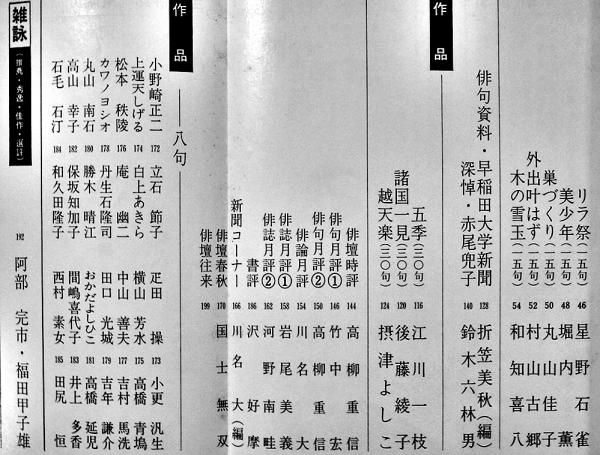 作品
リラ祭(一五句) 46 星野石雀
美少年(一五句) 48 堀内薫
巣づくり(一五句) 50 丸山佳子
外出叶はず(一五句) 52 村山古郷
木の雪玉(一五句) 54 和知喜八
俳句資料・早稲田大学新聞 128 折笠美秋(編)
深悼・赤尾兜子 140 鈴木六林男
五季(三〇句) 116 江川一枝
諸国一見(三〇句) 120 後藤綾子
越天楽(三〇句) 124 摂津よしこ
俳壇時評 144 高柳重信
俳句月評① 146 竹中宏
俳句月評② 150 高柳重信
俳論月評 154 川名大
俳誌月評① 158 岩尾美義
俳誌月評② 162 河野南畦
書評 186 沢好摩
新聞コーナー 166 川名大(編)
俳壇春秋 170 国士無双
俳壇往来 199
作品
――八句――
小野崎正二 172 立石節子 疋田操 173 小更汎生
上運天しげる 174 白上あきら 横山芳水 175 高橋青塢
松本秩陵 176 庵幽二 中山善夫 177 吉村馬洗
カワノヨシオ 178 丹生石隆司 田口光城 179 吉年謙二
丸山南石 180 勝木晴江 おかだよしひこ 181 高橋延児
高山幸子 182 保坂知加子 間嶋喜代子 183 井上多香
石毛石汀 184 和久田隆子 西村素女 185 田尻恒
雑詠(推薦・秀逸・佳作・選評) 192 阿部完市・福田甲子雄